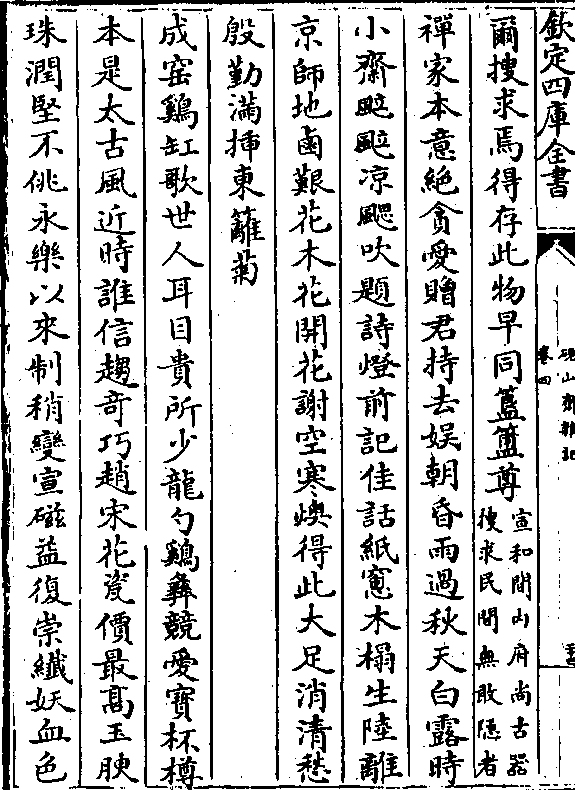 欽定四庫全書
硯山齋雜記
卷四
爾搜求焉得存此物早同簠簋尊宣和間山府尚古器
搜求民間無敢隱者
禪家本意絶貪愛贈君持去娱朝昏雨過秋天白露時
小齋颭颭凉颸吹題詩燈前記佳話紙窻木榻生陸離
京師地鹵艱花木花開花謝空寒燠得此大足消清愁
殷勤滿挿東籬菊
成窑鷄缸歌世人耳目貴所少龍勺鷄彝競愛寶杯樽
本是太古風近時誰信趨竒巧趙宋花瓷價最髙玉腴
珠潤堅不佻永樂以來制稍變宣磁益復崇纎妖血色